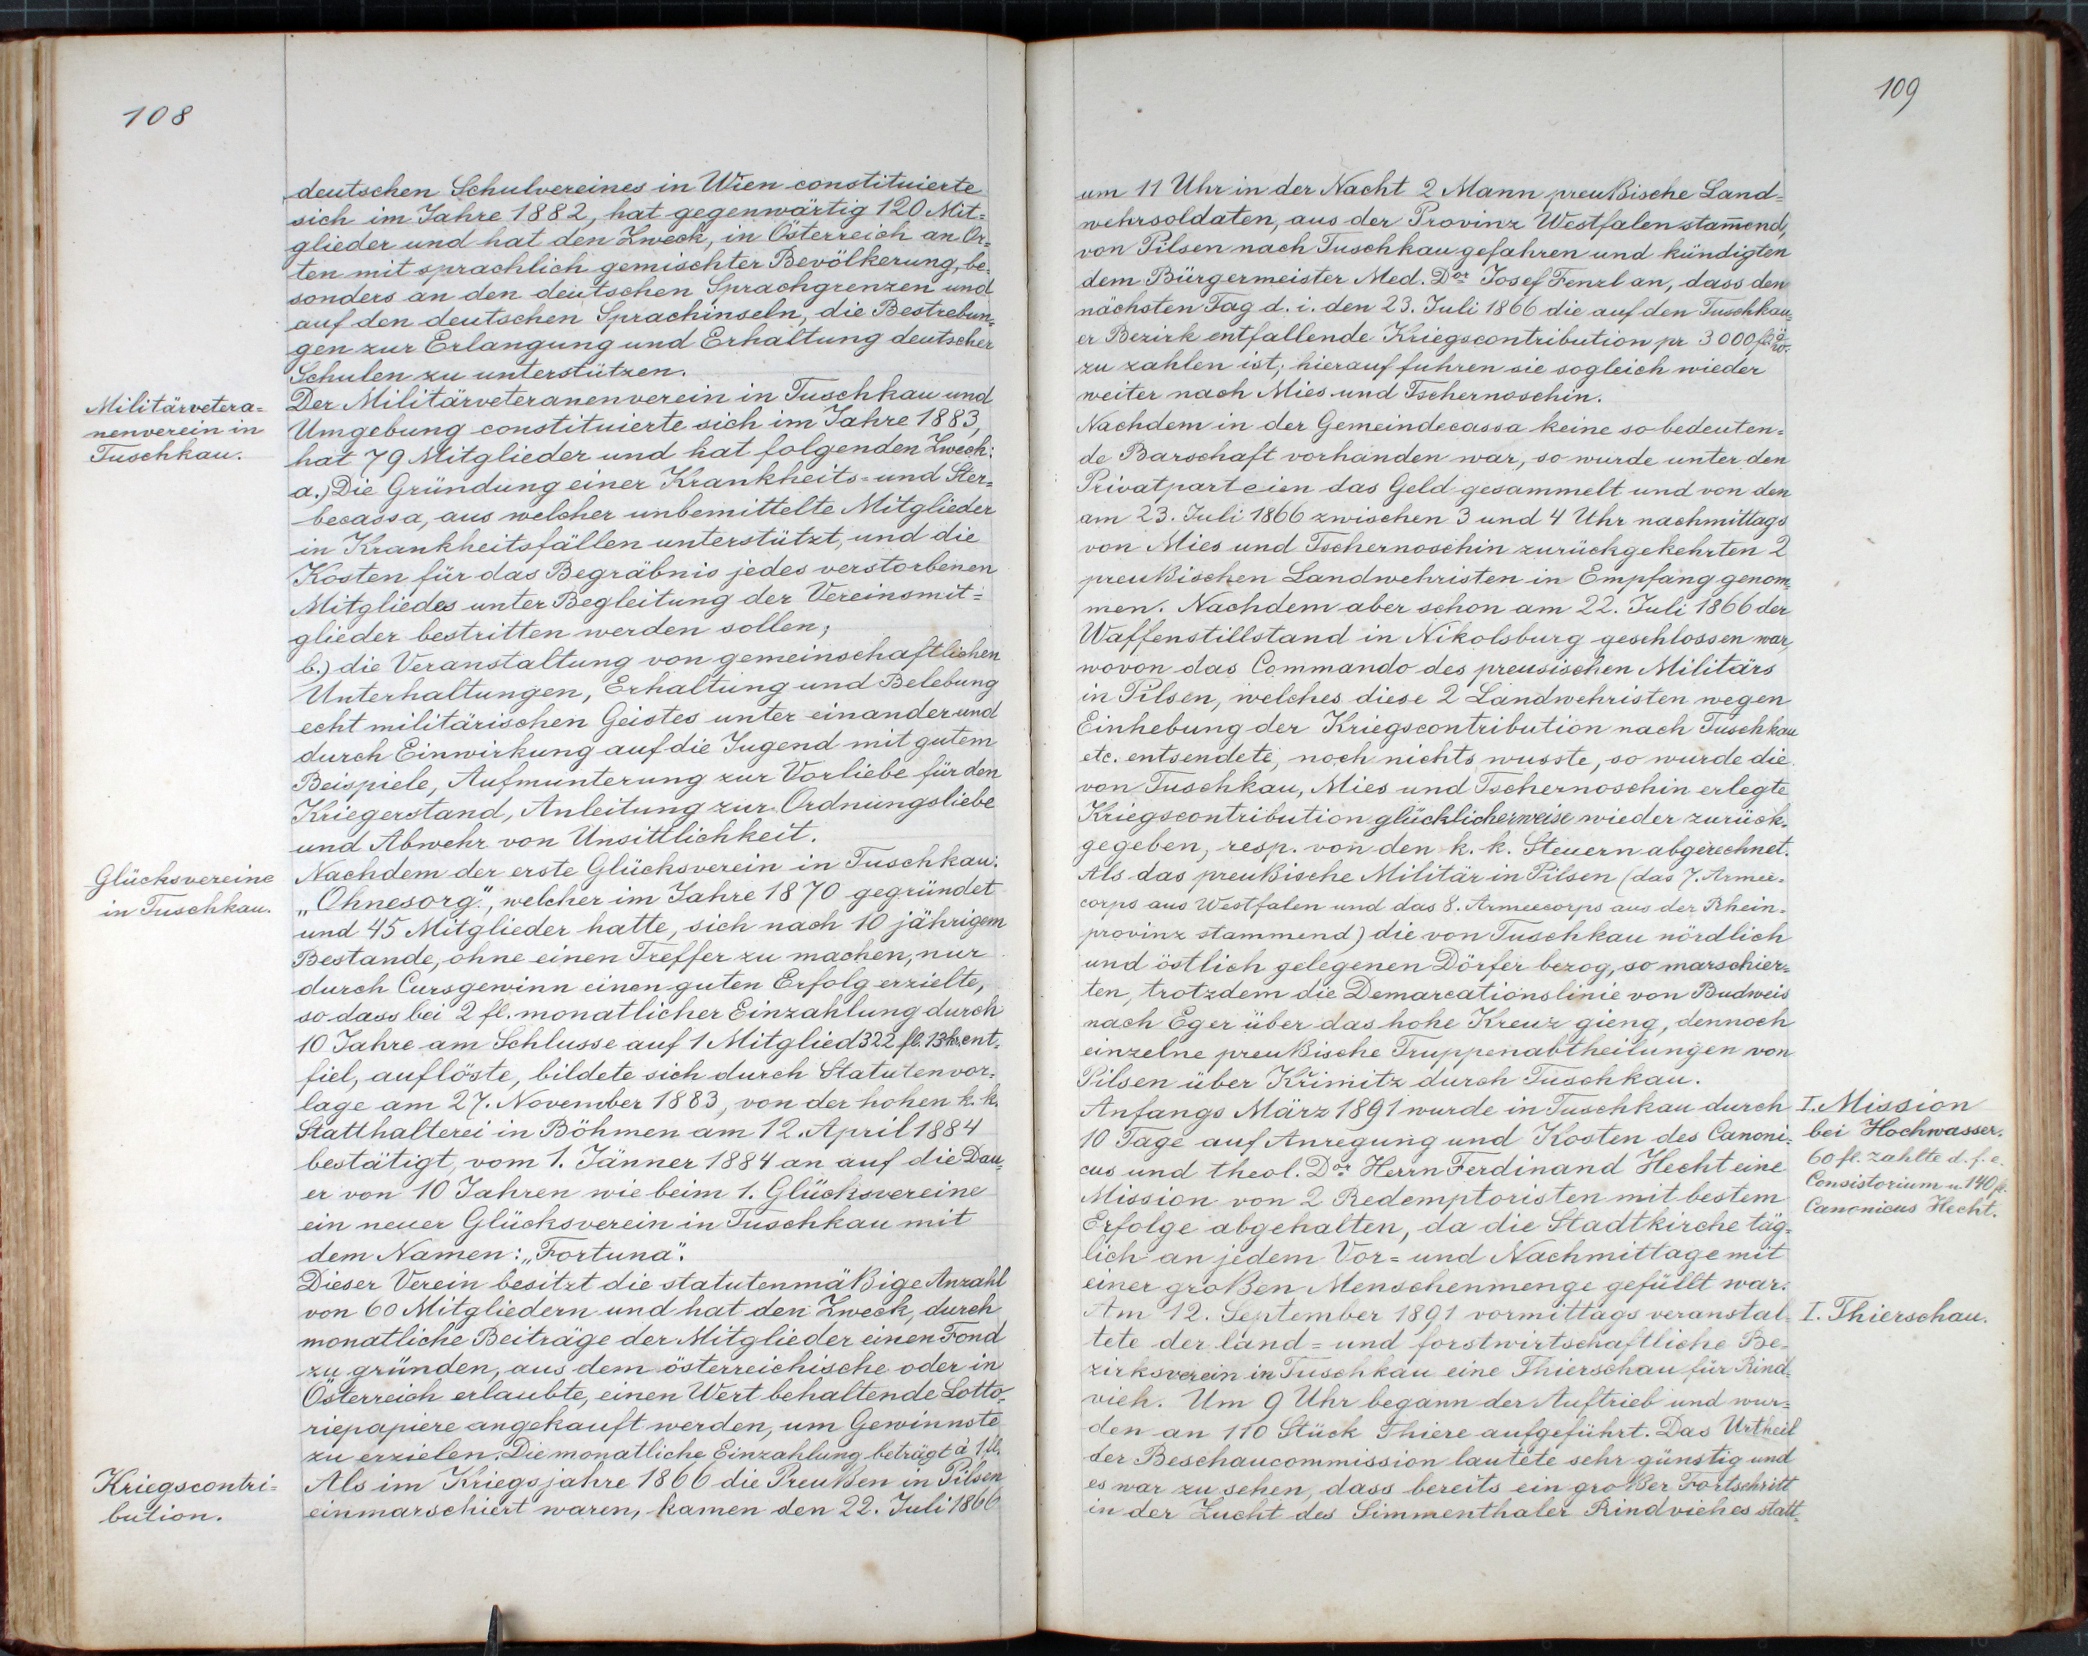 108
deutschen Schulvereines in Wien constituierte
sich im Jahre 1882, hat gegenwärtig 120 Mit=
glieder und hat den Zweck, in Österreich an Or=
ten mit sprachlich gemischter Bevölkerung, be=
sonders an den deutschen Sprachgrenzen und
auf den deutschen Sprachinseln, die Bestrebun=
gen zur Erlangung und Erhaltung deutscher
Schulen zu unterstützen.
Militärvetera=
nenverein in
Tuschkau.
Der Militärveteranenverein in Tuschkau und
Umgebung constituierte sich im Jahre 1883,
hat 79 Mitglieder und hat folgenden Zweck:
a.) Die Gründung einer Krankheits= und Ster=
becassa, aus welcher unbemittelte Mitglieder
in Krankheitsfällen unterstützt, und die
Kosten für das Begräbnis jedes verstorbenen
Mitgliedes unter Begleitung der Vereinsmit=
glieder bestritten werden sollen;
b.) die Veranstaltung von gemeinschaftlichen
Unterhaltungen, Erhaltung und Belebung
echt militärischen Geistes unter einander und
durch Einwirkung auf die Jugend mit gutem
Beispiele, Aufmunterung zur Vorliebe für den
Kriegerstand, Anleitung zur Ordnungsliebe
und Abwehr von Unsittlichkeit.
Glücksvereine
in Tuschkau.
Nachdem der erste Glücksverein in Tuschkau:
„Ohnesorg“, welcher im Jahre 1870 gegründet
und 45 Mitglieder hatte, sich nach 10 jährigem
Bestande, ohne einen Treffer zu machen, nur
durch Cursgewinn einen guten Erfolg erzielte,
so dass bei 2 fl. monatlicher Einzahlung durch
10 Jahre am Schlusse auf 1 Mitglied 322 fl. 13 kr. ent=
fiel, auflöste, bildete sich durch Statutenvor=
lage am 27. November 1883, von der hohen k. k.
Statthalterei in Böhmen am 12. April 1884
bestätigt, vom 1. Jänner 1884 an auf die Dau=
er von 10 Jahren wie beim 1. Glücksvereine
ein neuer Glücksverein in Tuschkau mit
dem Namen: „Fortuna“.
Dieser Verein besitzt die statutenmäßige Anzahl
von 60 Mitgliedern und hat den Zweck, durch
monatliche Beiträge der Mitglieder einen Fond
zu gründen, aus dem österreichische oder in
Österreich erlaubte, einen Wert behaltende Lotto=
riepapiere angekauft werden, um Gewinnste
zu erzielen. Die monatliche Einzahlung beträgt à 1 fl.
Kriegscontri=
bution.
Als im Kriegsjahre 1866 die Preußen in Pilsen
einmarschiert waren, kamen den 22. Juli 1866
109
um 11 Uhr in der Nacht 2 Mann preußische Land=
wehrsoldaten, aus der Provinz Westfalen stam̄end,
von Pilsen nach Tuschkau gefahren und kündigten
dem Bürgermeister Med. Dor Josef Fenzl an, dass den
nächsten Tag d. i. den 23. Juli 1866 die auf den Tuschkau=
er Bezirk entfallende Kriegscontribution pr 3000 fl. ö. W.
zu zahlen ist; hierauf fuhren sie sogleich wieder
weiter nach Mies und Tschernoschin.
Nachdem in der Gemeindecassa keine so bedeuten=
de Barschaft vorhanden war, so wurde unter den
Privatparteien das Geld gesammelt und von den
am 23. Juli 1866 zwischen 3 und 4 Uhr nachmittags
von Mies und Tschernoschin zurückgekehrten 2
preußischen Landwehristen in Empfang genom=
men. Nachdem aber schon am 22. Juli 1866 der
Waffenstillstand in Nikolsburg geschlossen war,
wovon das Commando des preusischen Militärs
in Pilsen, welches diese 2 Landwehristen wegen
Einhebung der Kriegscontribution nach Tuschkau
etc. entsendete, noch nichts wusste, so wurde die
von Tuschkau, Mies und Tschernoschin erlegte
Kriegscontribution glücklicherweise wieder zurück=
gegeben, resp. von den k. k. Steuern abgerechnet.
Als das preußische Militär in Pilsen (das 7. Armee=
corps aus Westfalen und das 8. Armeecorps aus der Rhein=
provinz stammend) die von Tuschkau nördlich
und östlich gelegenen Dörfer bezog, so marschier=
ten, trotzdem die Demarcationslinie von Budweis
nach Eger über das hohe Kreuz gieng, dennoch
einzelne preußische Truppenabtheilungen von
Pilsen über Křimitz durch Tuschkau.
Anfangs März 1891 wurde in Tuschkau durch
10 Tage auf Anregung und Kosten des Canoni=
cus und theol. Dor Herrn Ferdinand Hecht eine
Mission von 2 Redemptoristen mit bestem
Erfolge abgehalten, da die Stadtkirche täg=
lich an jedem Vor= und Nachmittage mit
einer großen Menschenmenge gefüllt war.
I. Mission
bei Hochwasser.
60 fl. zahlte d. f. e.
Consistorium u. 140 fl.
Canonicus Hecht.
Am 12. September 1891 vormittags veranstal=
tete der land= und forstwirtschaftliche Be=
zirksverein in Tuschkau eine Thierschau für Rind=
vieh. Um 9 Uhr begann der Auftrieb und wur=
den an 110 Stück Thiere aufgeführt. Das Urtheil
der Beschaucommission lautete sehr günstig und
es war zu sehen, dass bereits ein großer Fortschritt
in der Zucht des Simmenthaler Rindviehes statt=
I. Thierschau.